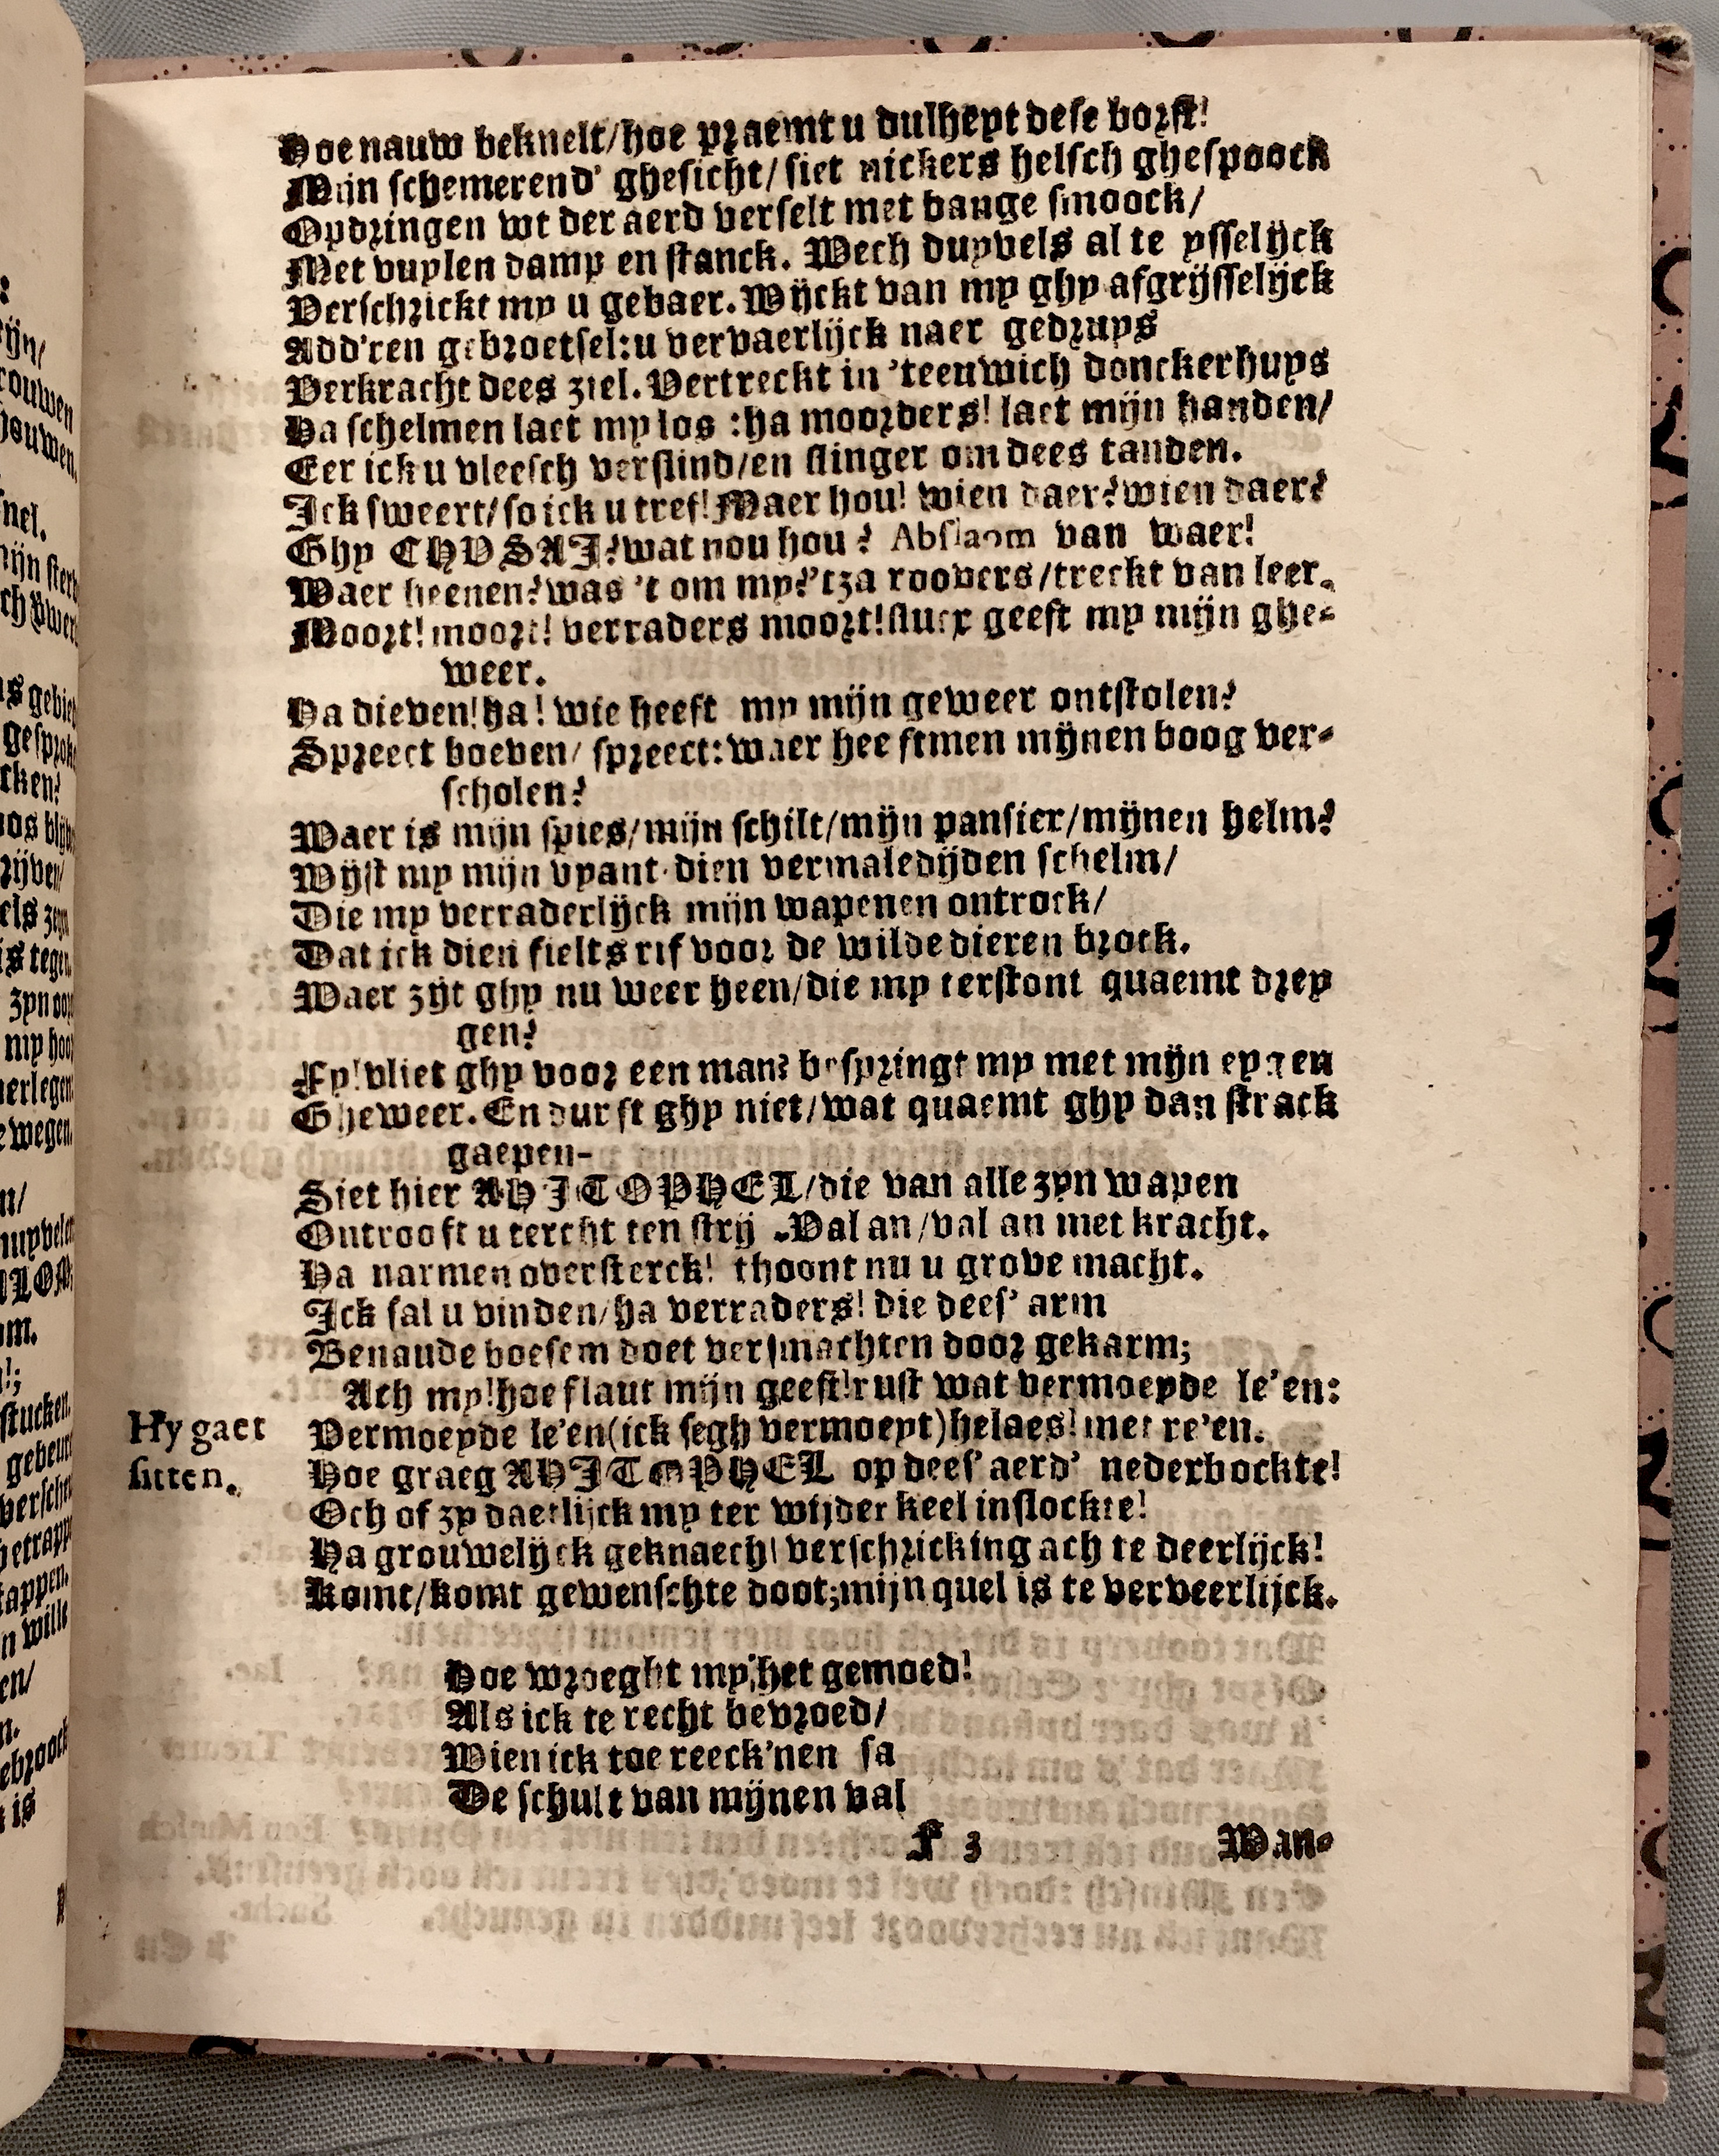 Hoe nauw beknelt/hoe praemt u dulheyt dese borst!
Mijn schemerend' ghesicht/ siet nickers helsch ghespoock
Opdringen wt der aerd verselt met bange smoock/
Met vuylen damp en stanck. Wech duyvels al te ysselijck
Verschrickt my u gebaer. Wijckt van my ghy afgrijsselijck
Add'ren gebroetsel: u vervaerlijck naer gedruys
Verkracht dees ziel. Vertreckt in 'teeuwich donckerhuys
Ha schelmen laet my los : ha moorders! laet mijn handen/
Eer ick u vleesch verslind/en slinger om dees tanden.
Ick sweert/ so ick u tref! Maer hou! wien daer? wien daer?
Ghy CHUSAI? wat nou hou? Abslaom van waer!
Waer heenen? was 't om my? 'tza roovers/treckt van leer.
Moort! moort! verraders moort! flucx geeft my mijn ghe-
weer.
Ha dieven! ha! wie heeft my mijn geweer ontstolen?
Spreect boeven/ spreect: waer heeftmen mijnen boog ver-
scholen?
Waer is mijn spies/mijn schilt/mijn pansier/mijnen helm?
Wijst my mijn vyant dien vermaledijden schelm/
Die my verraderlijck mijn wapenen ontrock/
Dat ick dien fielts rif voor de wilde dieren brock.
Waer zijt ghy nu weer heen/die my terstont quaemt drey
gen?
Fy! vliet ghy voor een man? bespringt my met mijn eygen
Gheweer. En durft ghy niet/wat quaemt ghy dan strack
gaepen-
Siet hier AHITOPHEL/die van alle zyn wapen
Ontrooft u tercht ten strij. Val an/val an met kracht.
Ha narmen oversterck! thoont nu u grove macht.
Ick sal u vinden/ha verraders! die dees' arm
Benaude boesem doet versmachten door gekarm;
Ach my! hoe flaut mijn geest! rust wat vermoeyde le'en:
Hy gaet
sitten.
Vermoeyde le'en(ick segh vermoeyt)helaes! met re'en.
Hoe graeg AHITOPHEL op dees' aerd' nederbockte!
Och of zy daetlijck my ter wijder keel inslockte!
Ha grouwelijck geknaech! verschricking ach te deerlijck!
Komt/komt gewenschte doot;mijn quel is te verveerlijck.
Hoe wroeght my het gemoed!
Als ick te recht bevroed/
Wien ick toe reeck'nen sa
De schult van mijnen val
F 3
Wan-